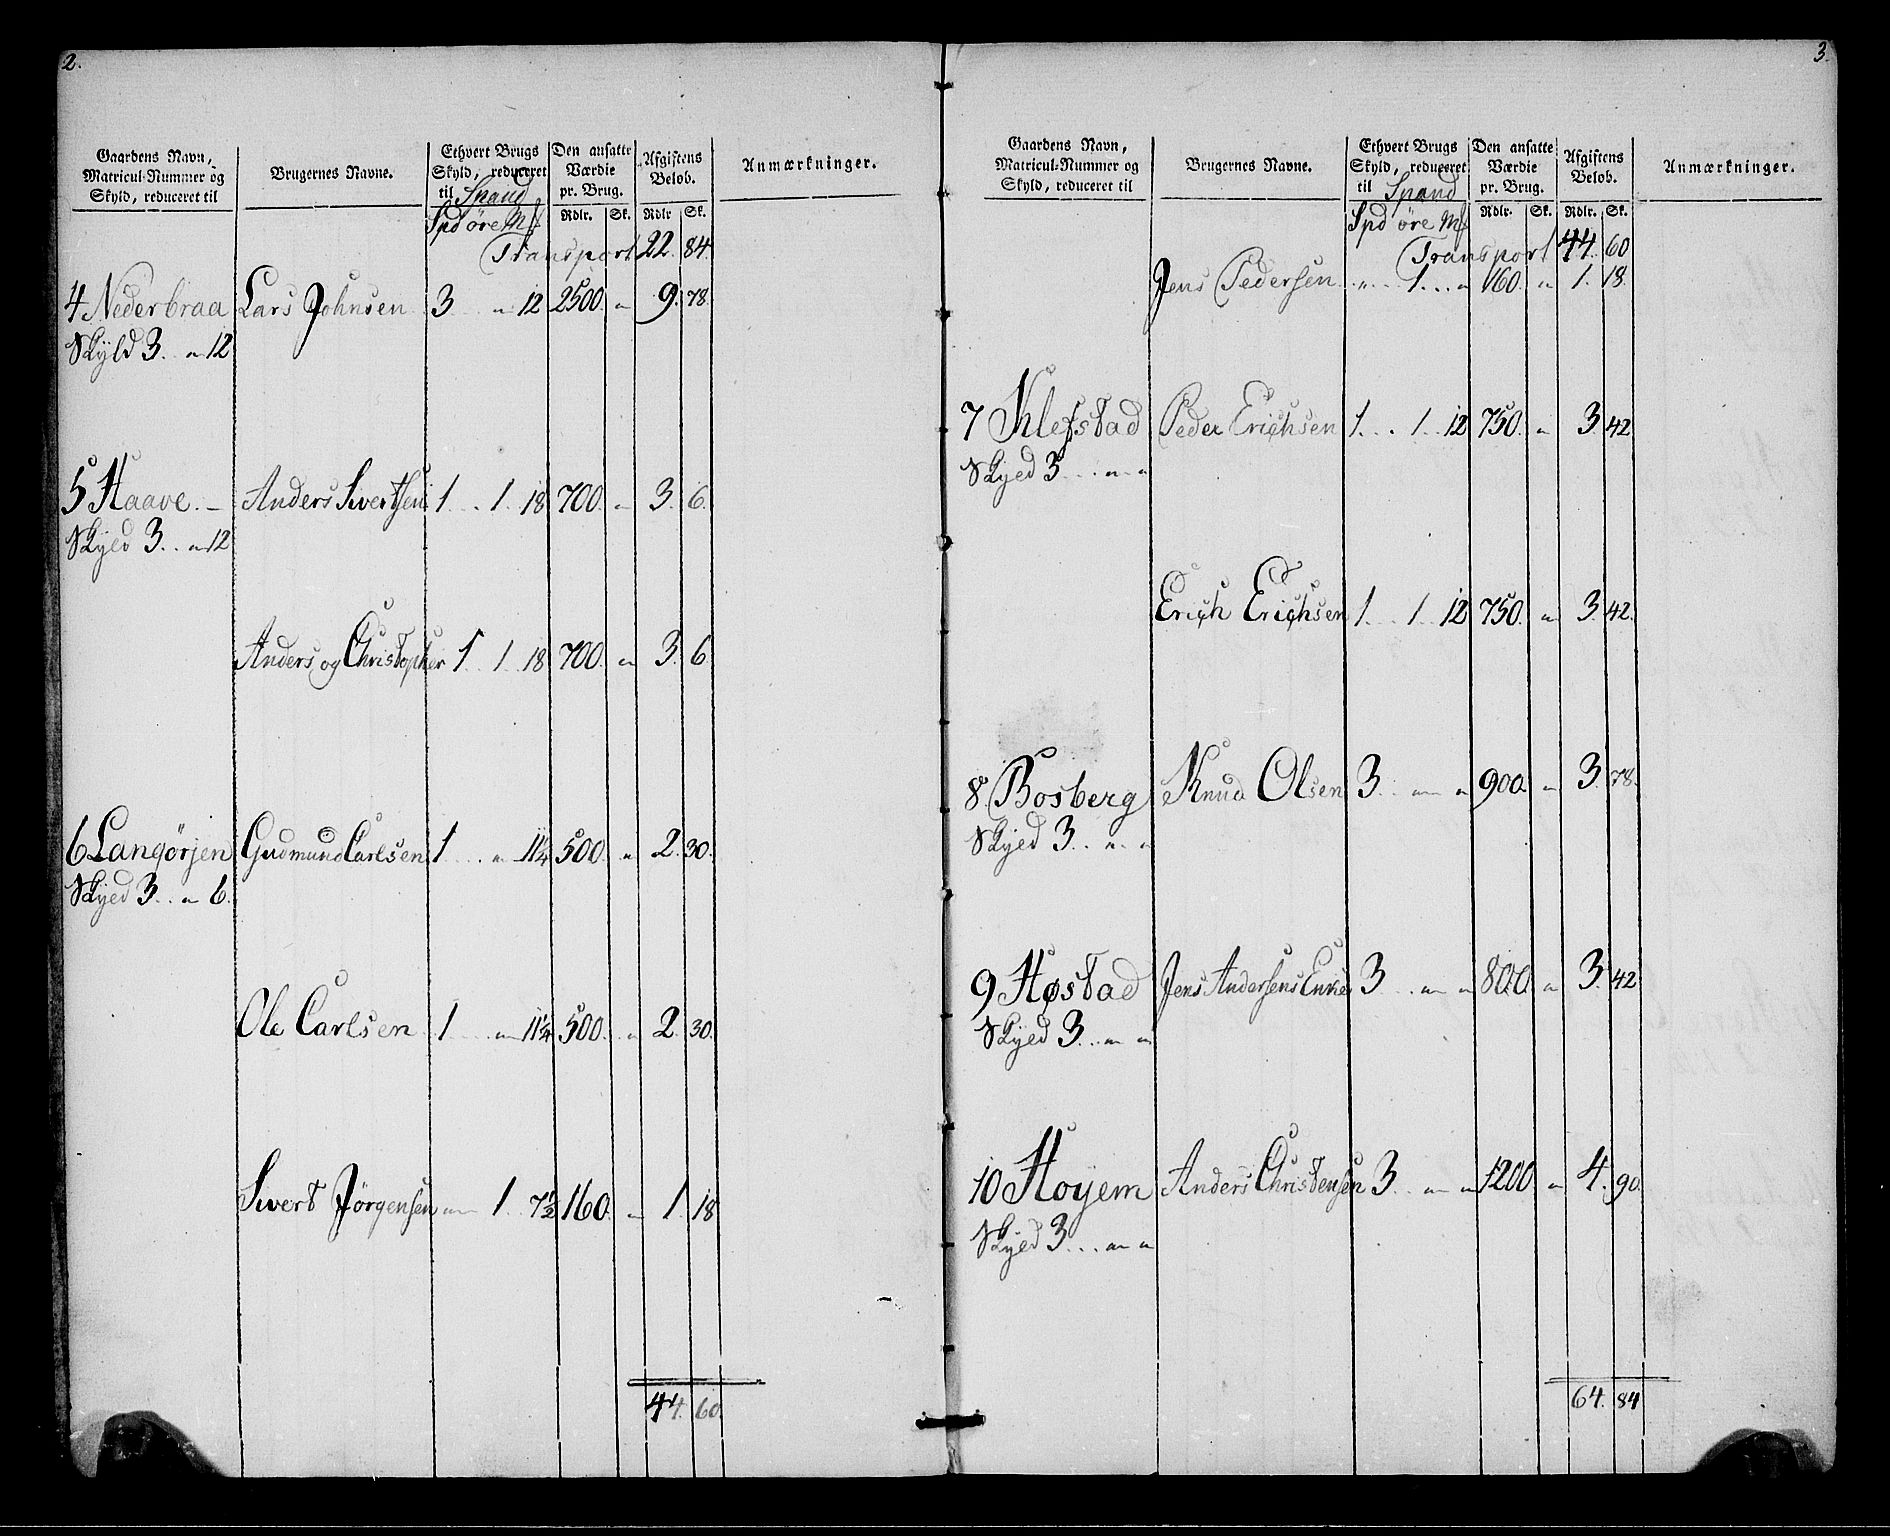 2.
Gaardens Navn, Matricul-Nummer og Skyld, reduceret til | Brugernes Navne. | Ethvert Brugs Skyld, reduceret til Spand | Den ansatte Værdie pr. Brug. | Afgiftens Beløb. | Anmærkninger.
Spd öre Mk | Rdlr. | Sk. | Rdlr | Sk.
Transport 22. 84.
4 Nederbraa Lars Johnsen 3 " 12 2500 " 9. 78.
Skyld 3. " 12
5 Haave. Anders Sivertsen 1. 1. 18 700. " 3. 6.
Skyld 3. " 12
Anders og Christopher 1. 1. 18 700. " 3. 6.
6 Langörjen Gudmund Carlsen 1 " 11¼ 500. " 2. 30.
Skyld 3. " 6.
Ole Carlsen 1 " 11¼ 500. " 2. 30.
Sivert Jörgensen " 1. 7½ 160. " 1. 18
44. 60.
3.
Gaardens Navn, Matricul-Nummer og Skyld, reduceret til | Brugernes Navne. | Ethvert Brugs Skyld, reduceret til Spand | Den ansatte Værdie pr. Brug. | Afgiftens Beløb. | Anmærkninger.
Spd öre Mk | Rdlr. | Sk. | Rdlr. | Sk.
Transport 44. 60
Jens Pedersen " 1. " 160. " 1. 18.
7 Klefstad Peder Erichsen 1. 1. 12 750. " 3. 42
Skyld 3. " "
Erich Erichsen 1. 1. 12 750. " 3. 42.
8. Bosberg Knud Olsen 3. " " 900. " 3. 78.
Skyld 3. " "
9 Høstad Jens Andersens Enke 3 " " 800. " 3. 42
Skyld 3. " "
10 Hoyem Anders Christensen 3. " " 1200 " 4. 90.
Skyld 3. " "
64. 84